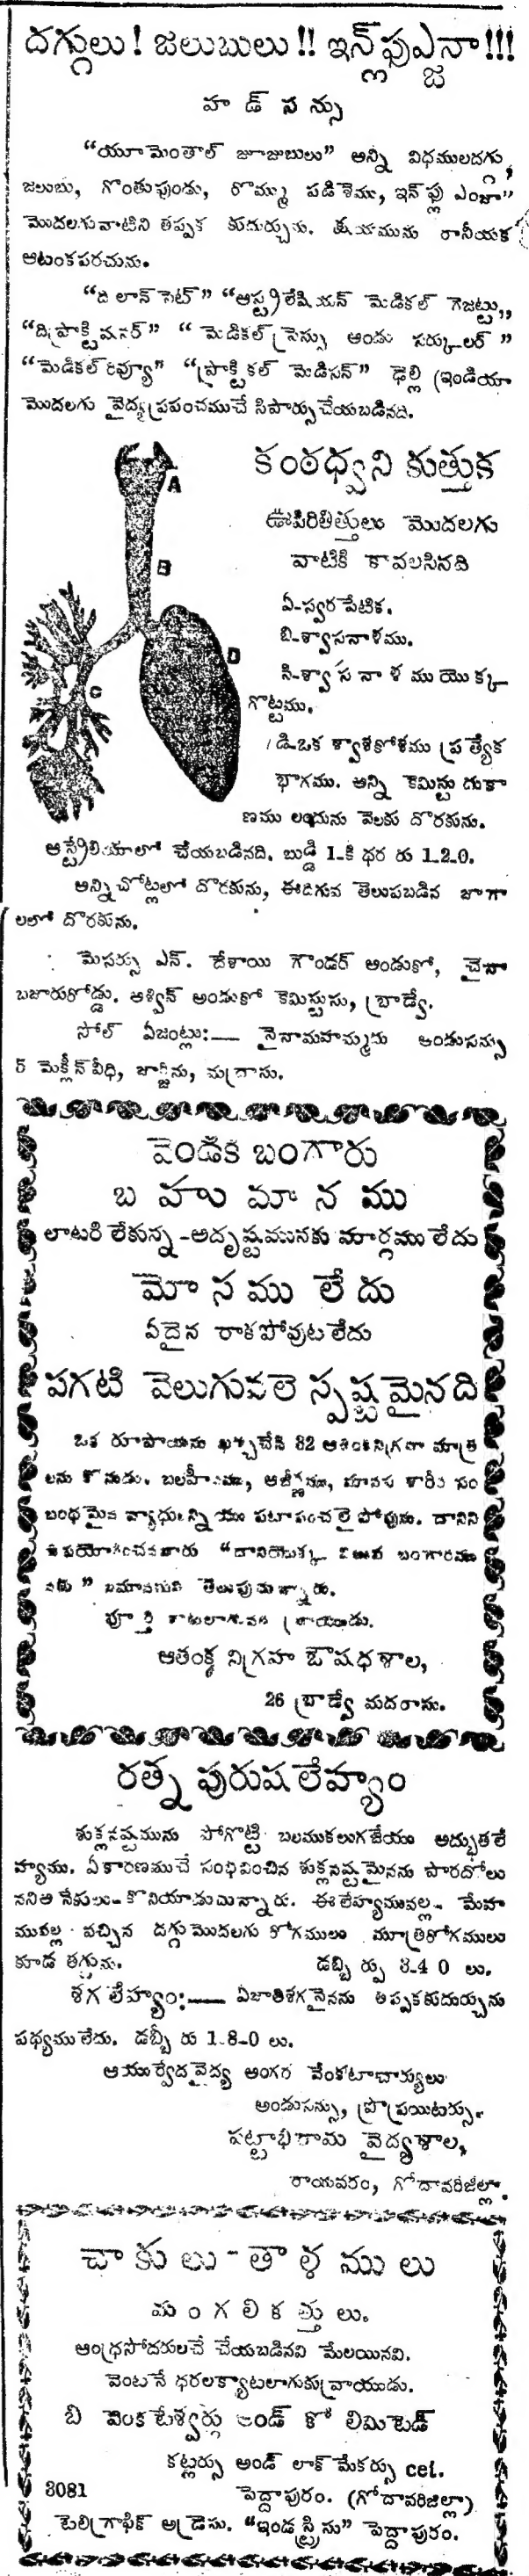 దగ్గులు! జలుబులు!! ఇన్‌ఫ్లుఎన్జా!!!
హడ్ సన్సు
“యూమెంతాల్ జూజుబులు” అన్ని విధములదగ్గు,
జలుబు, గొంతుపుండు, రొమ్ము పడిశెము, ఇన్‌ఫ్లు ఎంజా”
మొదలగువాటిని తప్పక కుదుర్చును. క్షయమును రానీయక
ఆటంకపరచును.
“ది లాన్ సెట్” “ఆస్ట్రలేషియన్ మెడికల్ గెజట్టు,,
“ది ప్రాక్టిషనర్” “మెడికల్ ప్రెస్సు ఆండు సర్క్యులర్”
“మెడికల్ రివ్యూ” “ప్రాక్టికల్ మెడిసన్” ఢెల్లి (ఇండియా
మొదలగు వైద్యప్రపంచముచే సిపార్సుచేయబడినది.
కంఠధ్వని కుత్తుక
ఊపిరితిత్తులు మొదలగు
వాటికి కావలసినవి
A
B
C
D
ఏ-స్వరపేటిక.
బి-శ్వాసనాళము.
సి-శ్వాసనాళముయొక్క
గొట్టము.
డి-ఒక శ్వాశకోశము ప్రత్యేక
భాగము. అన్ని కెమిస్టు దుకా
ణము లందును వెలకు దొరకును.
ఆస్ట్రేలియాలో చేయబడినది. బుడ్డి 1-కి ధర రు 1-2-0.
అన్నిచోట్లలో దొరకును, ఈదిగువ తెలుపబడిన జాగా
లలో దొరకును.
మెసర్సు ఎన్. దేశాయి గౌండర్ ఆండుకో, చైనా
బజారురోడ్డు. ఆశ్విన్ అండుకో కెమిస్టుసు, బ్రాడ్వే.
సోల్ ఏజంట్లు:— నైనామహమ్మదు అండుసన్సు
5 మెక్లీన్ వీధి, జార్జిటౌను, మద్రాసు.
వెండికి బంగారు
బహుమానము
లాటరి లేకున్న-అదృష్టమునకు మార్గము లేదు
మోసము లేదు
ఏదైన రాకపోవుట లేదు
పగటి వెలుగువలె స్పష్టమైనది
ఒక రూపాయను ఖర్చుచేసి 32 ఆతంకనిగ్రహ మాత్ర
లను కొనుడు. బలహీనము, అజీర్ణము, మానవ శారీర సం
బంధమైన వ్యాధులన్నియు పటాపంచలై పోవును. దానిని
ఉపయోగించినవారు “దానియొక్క విలువ బంగారము
తెలుపుచున్నారు.
పూర్తి కాటలాగునకు వ్రాయుడు.
ఆతంక నిగ్రహ ఔషధశాల,
26 బ్రాడ్వే మదరాసు.
రత్న పురుష లేహ్యాం
శుక్లనష్టమును పోగొట్టి బలముకలుగజేయు అద్భుతలే
హ్యము. ఏకారణముచే సంభవించిన శుక్లనష్టమైనను పారదోలు
నని అనేకులు కొనియాడుచున్నారు. ఈలేహ్యమువల్ల మేహ
మువల్ల వచ్చిన దగ్గుమొదలగు రోగములు మూత్రరోగములు
కూడ తగ్గును. డబ్బి ర్పు 3-4 0 లు.
శగ లేహ్యం:— ఏజాతిశగనైనను తప్పకకుదుర్చును
పథ్యములేదు. డబ్బీ రు 1-8-0 లు.
ఆయుర్వేదవైద్య అంగర వేంకటాచార్యులు
అండుసన్సు, ప్రొప్రయిటర్సు.
పట్టాభిరామ వైద్యశాల,
రాయవరం, గోదావరిజిల్లా.
చాకులు-తాళములు
మంగలికత్తులు.
ఆంధ్రసోదరులచే చేయబడినవి మేలయినవి.
వెంటనే ధరలక్యాటలాగుకు వ్రాయుడు.
బి వెంకటేశ్వర్లు అండ్ కో లిమిటెడ్
కట్లర్సు అండ్ లాక్ మేకర్సు cet.
3081 పెద్దాపురం. (గోదావరిజిల్లా)
టెలిగ్రాఫిక్ అడ్రెసు. “ఇండస్ట్రీసు” పెద్దాపురం.